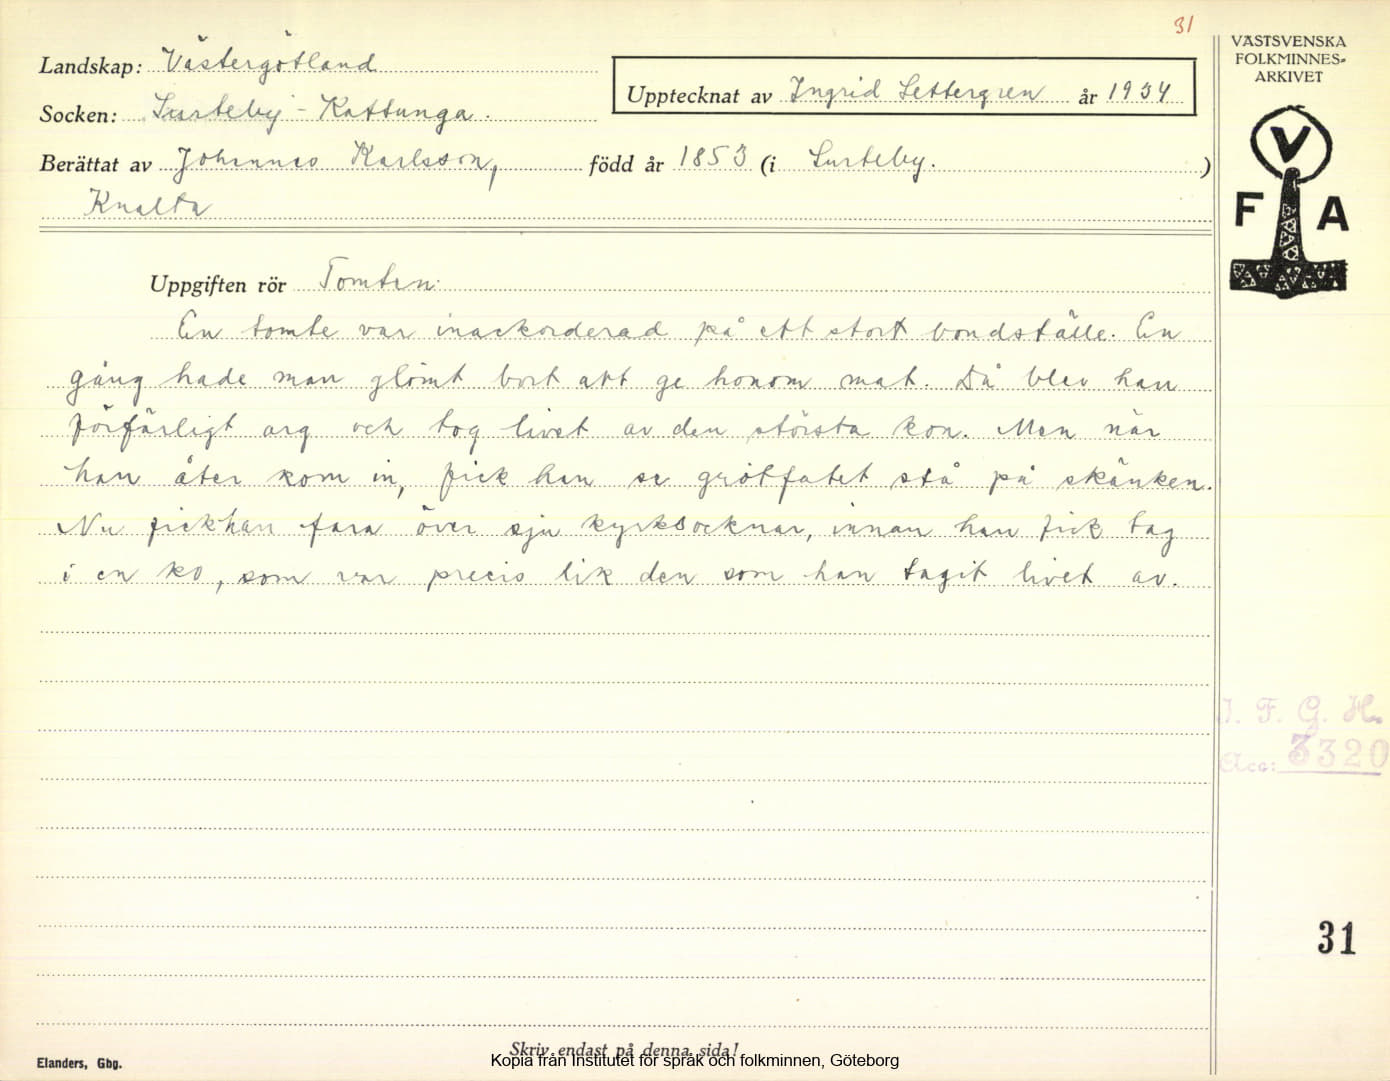 31
Landskap: Västergötland
Socken: Surteby - Kattunga.
Upptecknat av Ingrid Settergren år 1934
Berättat av Johannes Karlsson, född år 1853 (i Surteby. )
Knalta
VÄSTSVENSKA
FOLKMINNES-
ARKIVET
V
F A
Uppgiften rör Tomten.
En tomte var inackorderad på ett stort bondställe. En
gång hade man glömt bort att ge honom mat. Då blev han
förfärligt arg och tog livet av den största kon. Men när
han åter kom in, fick han se grötfatet stå på skänken.
Nu fick han fara över sju kyrksocknar, innan han fick tag
i en ko, som var precis lik den som han tagit livet av.
I. F. G. H.
Acc: 3320
31
Skriv endast på denna sida!
Elanders, Gbg.
Kopia från Institutet för språk och folkminnen, Göteborg